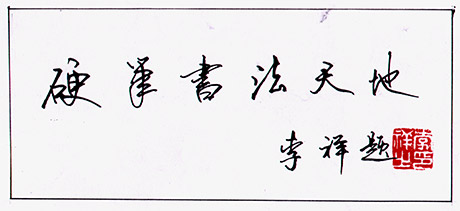 硬笔書法天地
李祥題